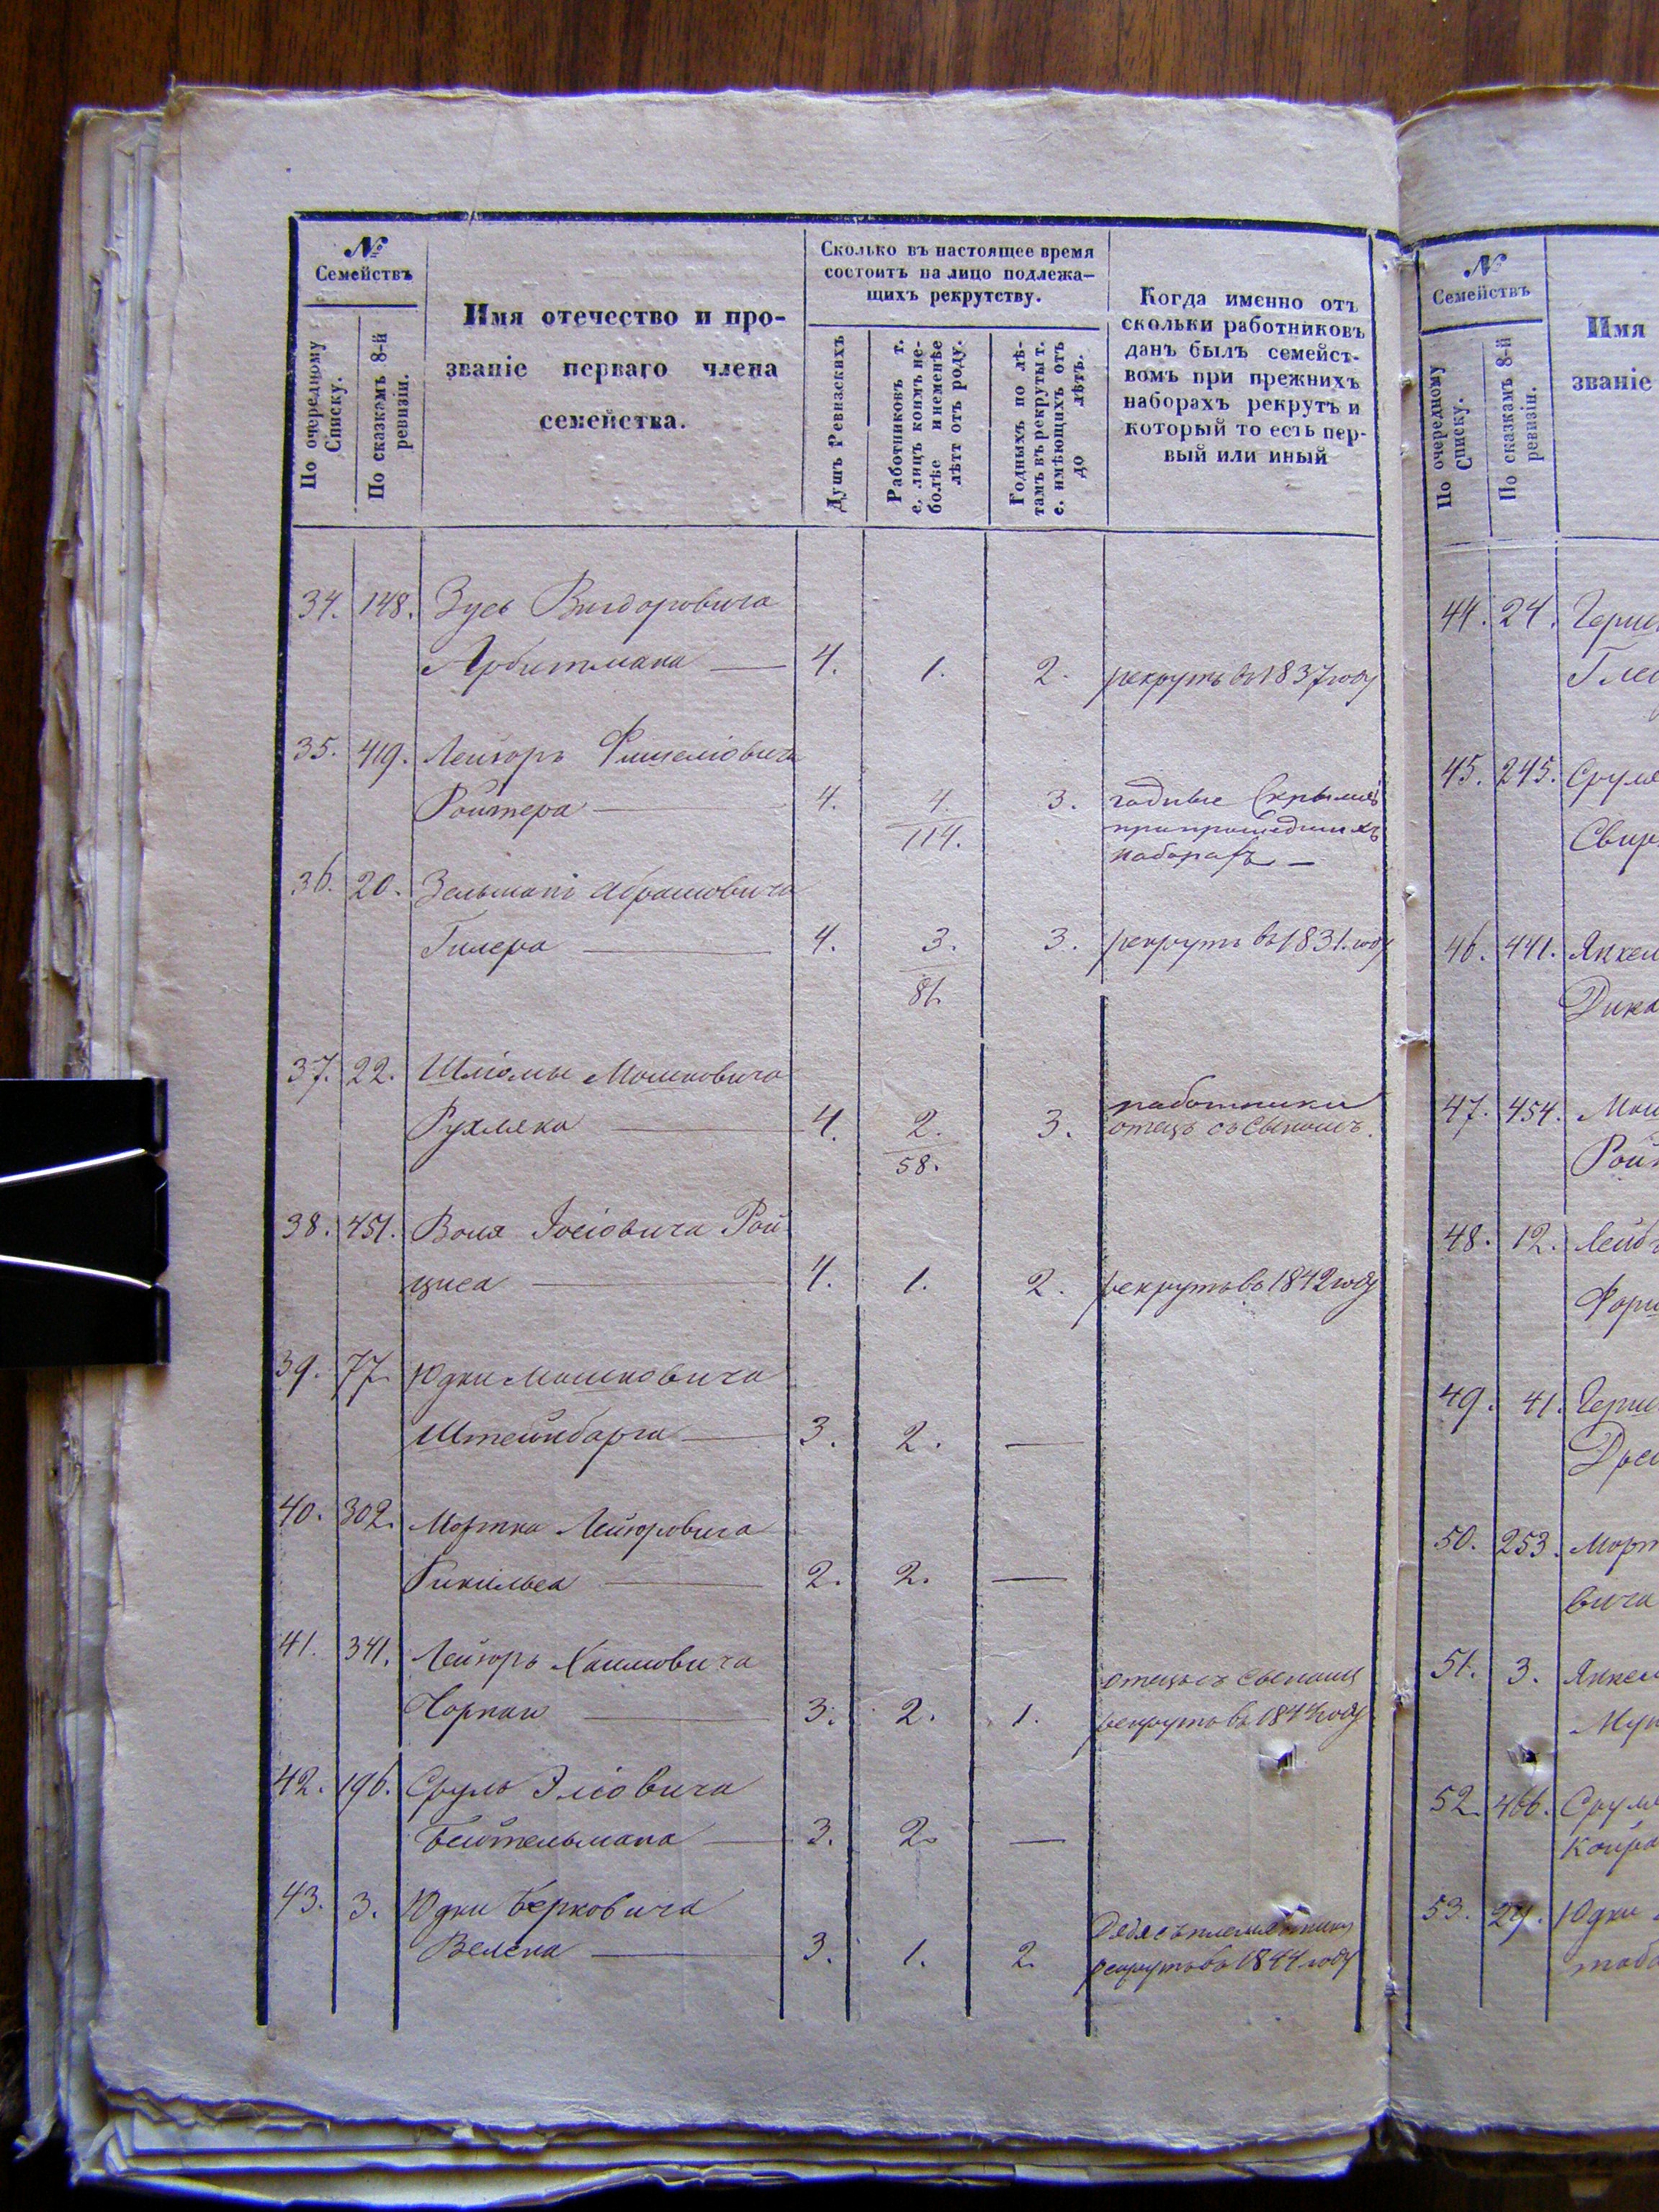 №
Семействъ
По очередному Списку.
По сказкамъ 8-й ревизіи.
Имя отечество и про-
званіе перваго члена
семейства.
Сколько въ настоящее время
состоитъ на лицо подлежа-
щихъ рекрутству.
Душъ Ревизскихъ
Работниковъ т.
е. лицъ коимъ не-
болѣе и неменѣе
лѣтт отъ роду.
Годныхъ по лѣ-
тамъ въ рекруты т.
е. имѣющихъ отъ
до лѣтъ.
Когда именно отъ
скольки работниковъ
данъ былъ семейст-
вомъ при прежнихъ
наборахъ рекрутъ и
который то есть пер-
вый или иный
34. 148. Зусь Вигдоровича
Арбитмана — 4. 1. 2. рекрутъ въ 1837 году
35. 419. Лейзоръ Фишеліовича
Ройтера — 4. 4. 3. годные скрылись
114. припрошедшихъ
наборахъ —
36. 20. Зельманъ Абрамовича
Гилера — 4. 3. 3. рекрутъ въ 1831. году
81.
37. 22. Шліомы Мошковича
работники
Рухляка — 4. 2. 3. отецъ съ сыномъ.
58.
38. 451. Воля Іосіовича Рой
циса — 4. 1. 2. рекрутъ въ 1842 году
39. 77. Юдки Мошковича
Штейнбарга — 3. 2. —
40. 302. Мортка Лейзоровича
— 2. 2. —
41. 341. Лейзоръ Хаимовича
отецъ съ сыномъ
— 3. 2. 1. рекрутъ въ 1844 году
42. 196. Сруль Эліовича
Бейтельмана — 3. 2. —
43. 3. Юдки Берковича
Дядя съ племянникомъ
Велена — 3. 1. 2. рекрутъ въ 1844 году
№
Семействъ
По очередному Списку.
По сказкамъ 8-й ревизіи.
Имя
званіе
44. 24. Герш
45. 245. Сруля
Свир
46. 441. Янкел
Дика
47. 454. Мош
Рой
48. 12. Лейб
49. 41. Герш
50. 253. Морт
вича
51. 3. Янкел
52. 466. Сруля
53. 29. Юдки